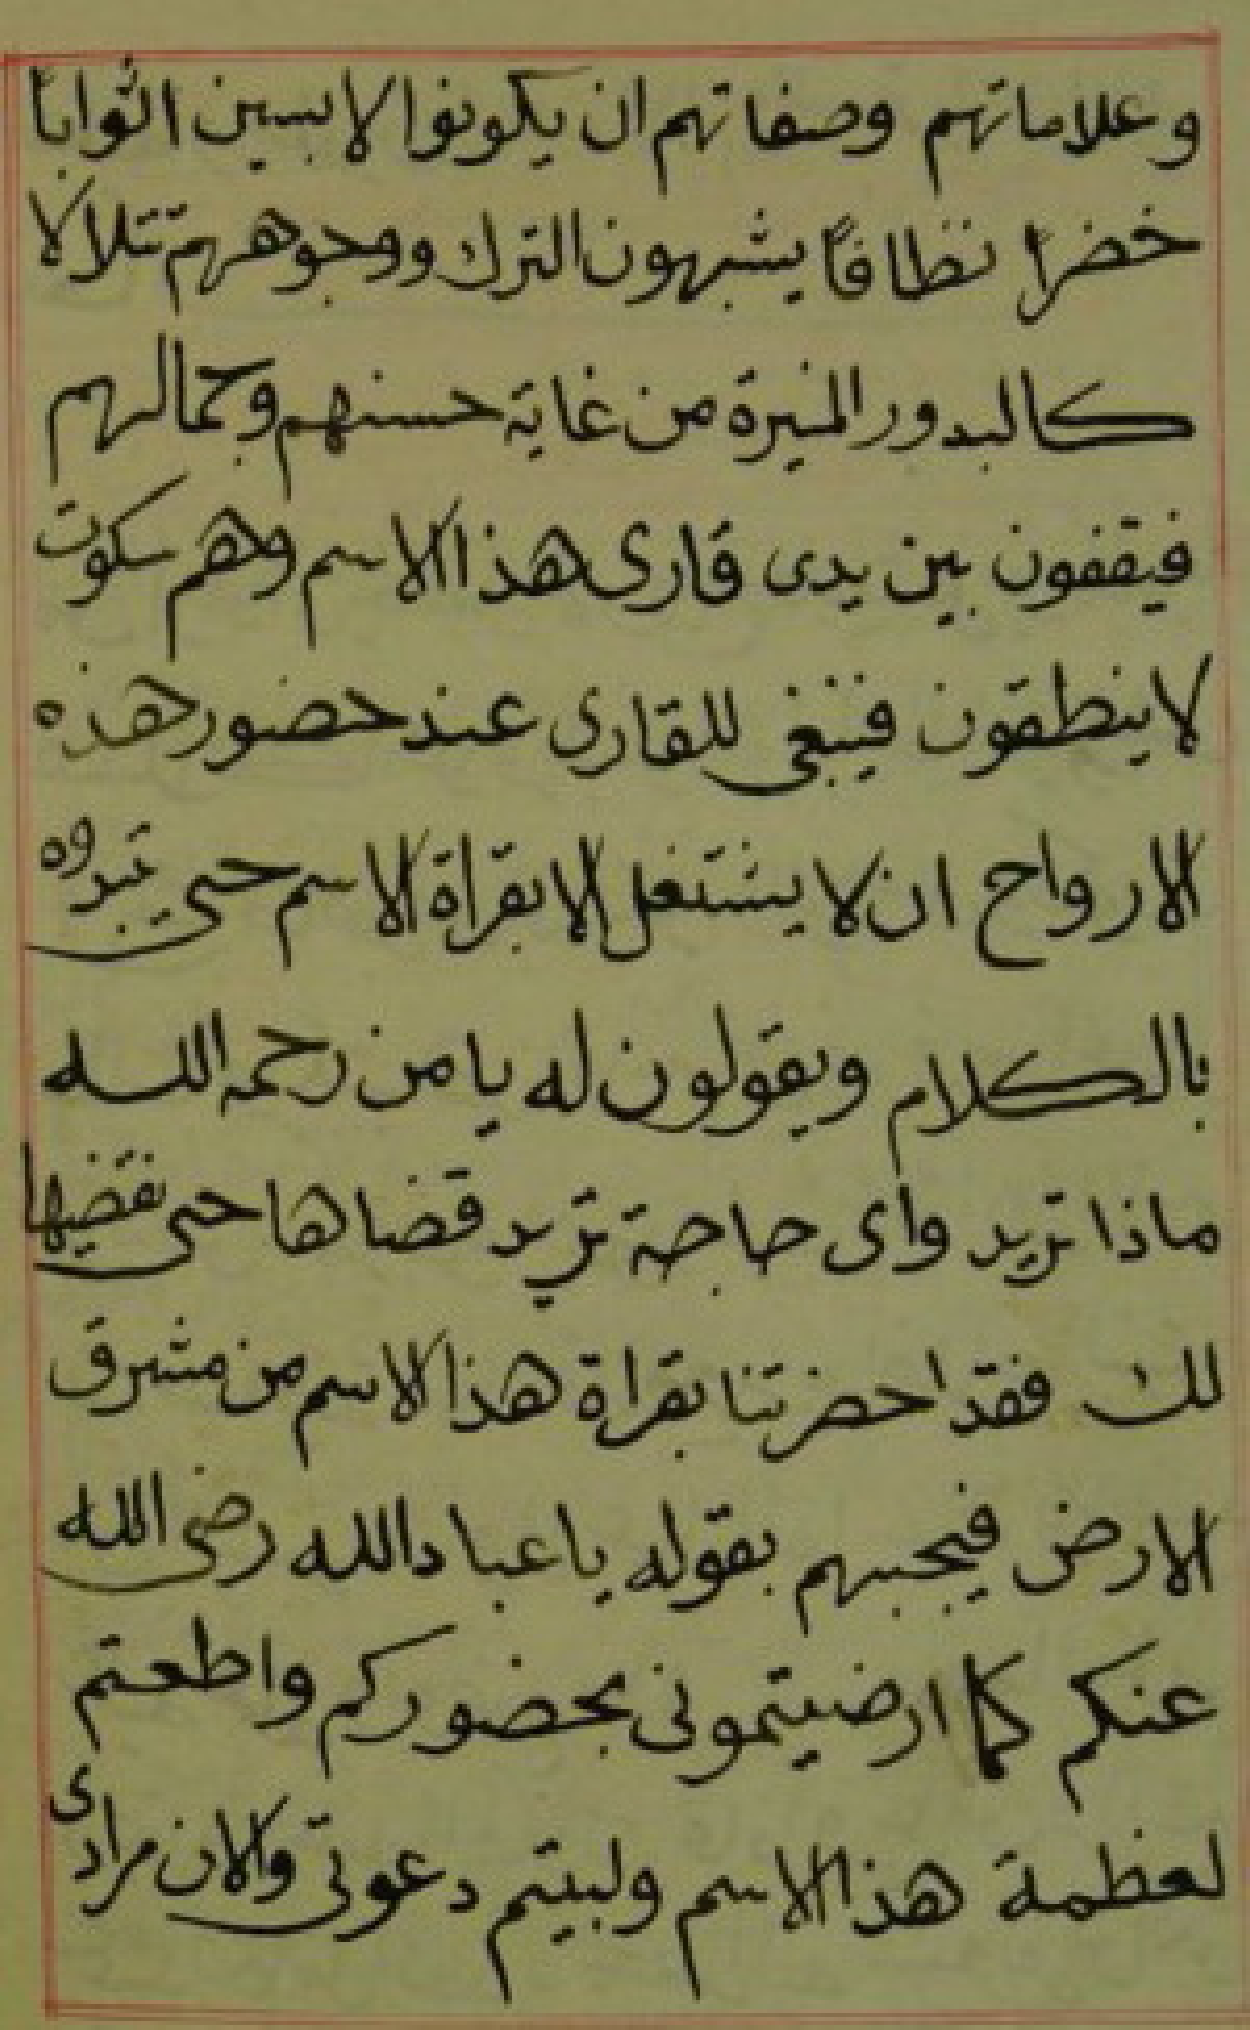 وعلاماتهم وصفاتهم ان يكونوا لابسين اثوابا
خضراً نظافاً يشبهون الترك ووجوههم تتلالا
كالبدور المنيرة من غاية حسنهم وجمالهم
فيقفون بين يدى قارى هذا الاسم وهم سكوت
لا ينطقون فينبغى للقارى عند حضور هذه
الارواح ان لا يشتغل الا بقراة الاسم حتى تبدوه
بالكلام ويقولون له يا من رحمه الله
ماذا تريد واى حاجة تريد قضاها حتى نقضيها
لك فقد احضرتنا بقراة هذا الاسم من مشرق
الارض فيجيبهم بقوله يا عباد الله رضى الله
عنكم كما ارضيتمونى بحضوركم واطعتم
لعظمة هذا الاسم ولبيتم دعوتى والان مرادى